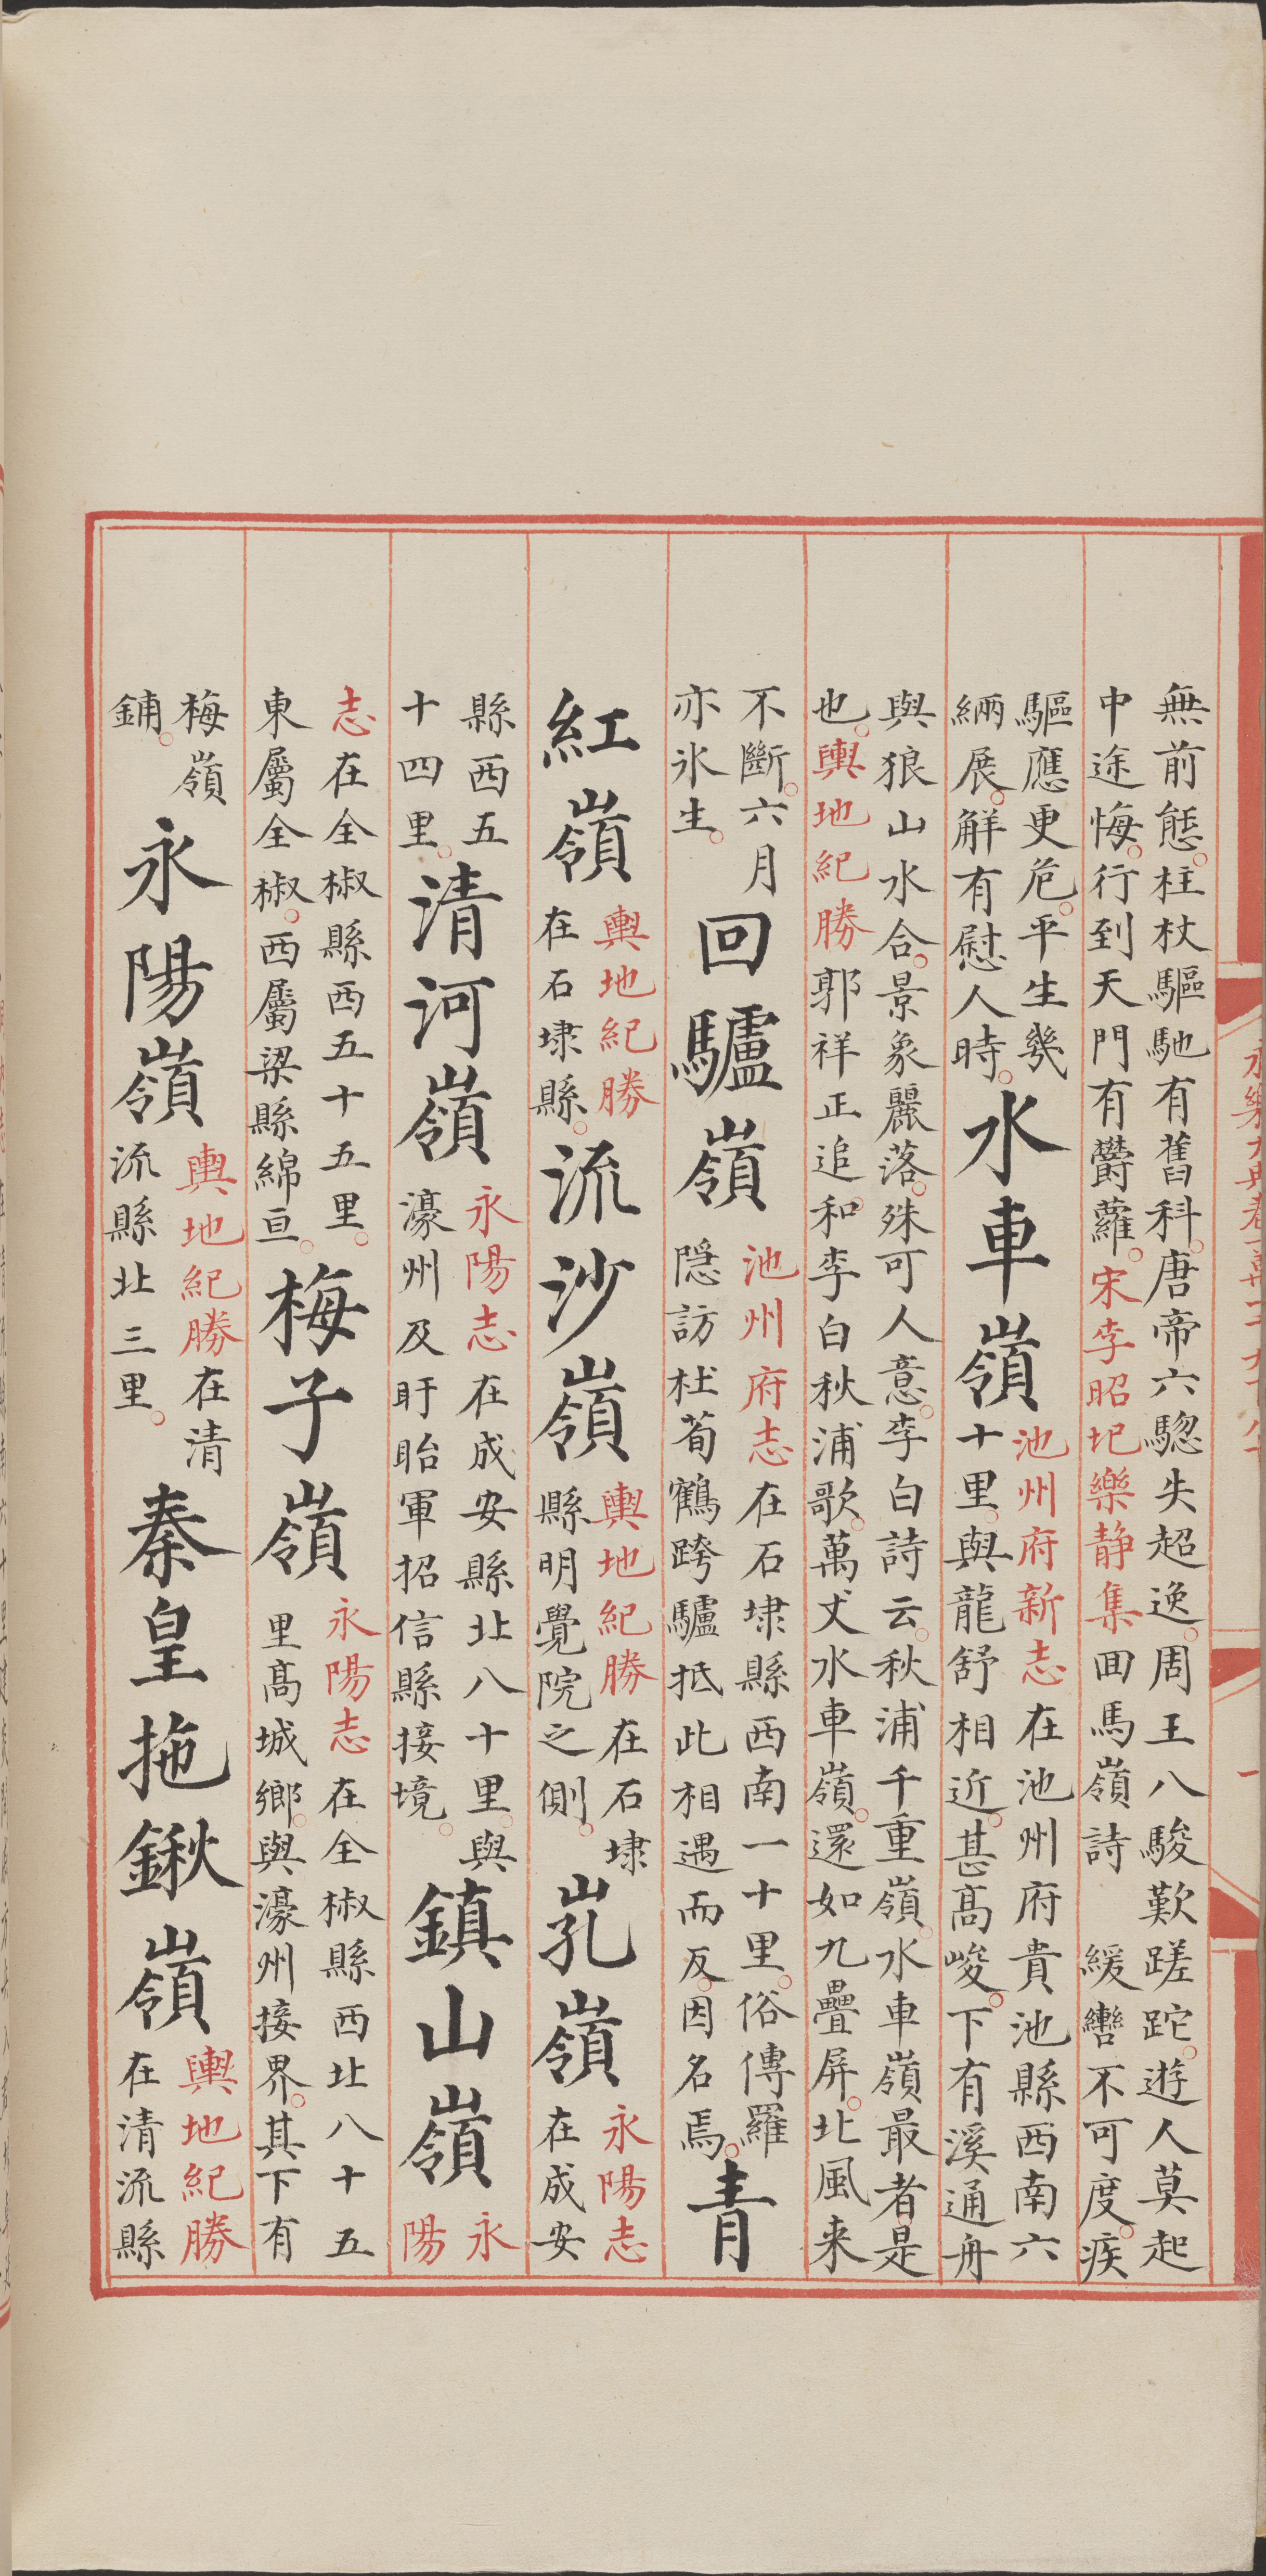 無前態。柱杖驅馳有舊科。唐帝六騘失超逸。周王八駿歎蹉跎。遊人莫起
中途悔。行到天門有欝蘿。宋李昭玘樂静集回馬嶺詩 緩轡不可度。疾
驅應更危。平生幾
緉展。解有慰人時。
水車嶺
池州府新志在池州府貴池縣西南六
十里。與龍舒相近。甚髙峻。下有溪通舟
與狼山水合。景象麗落。殊可人意。李白詩云。秋浦千重嶺。水車嶺最者。是
也。輿地紀勝郭祥正追和李白秋浦歌。萬丈水車嶺。還如九疊屏。北風来
不斷。六月
亦氷生。
回驢嶺
池州府志在石埭縣西南一十里。俗傳羅
隠訪杜荀鶴跨驢抵此相遇而反。因名焉。
青
紅嶺
輿地紀勝
在石埭縣。
流沙嶺
輿地紀勝在石埭
縣明覺院之側。
嶺
永陽志
在成安
縣西五
十四里。
清河嶺
永陽志在成安縣北八十里。與
濠州及盱眙軍招信縣接境。
鎮山嶺
永
陽
志在全椒縣西五十五里。
東屬全椒。西屬梁縣綿亘。
梅子嶺
永陽志在全椒縣西北八十五
里髙城鄉。與濠州接界。其下有
梅嶺
鋪。
永陽嶺
輿地紀勝在清
流縣北三里。
秦皇拖鍬嶺
輿地紀勝
在清流縣